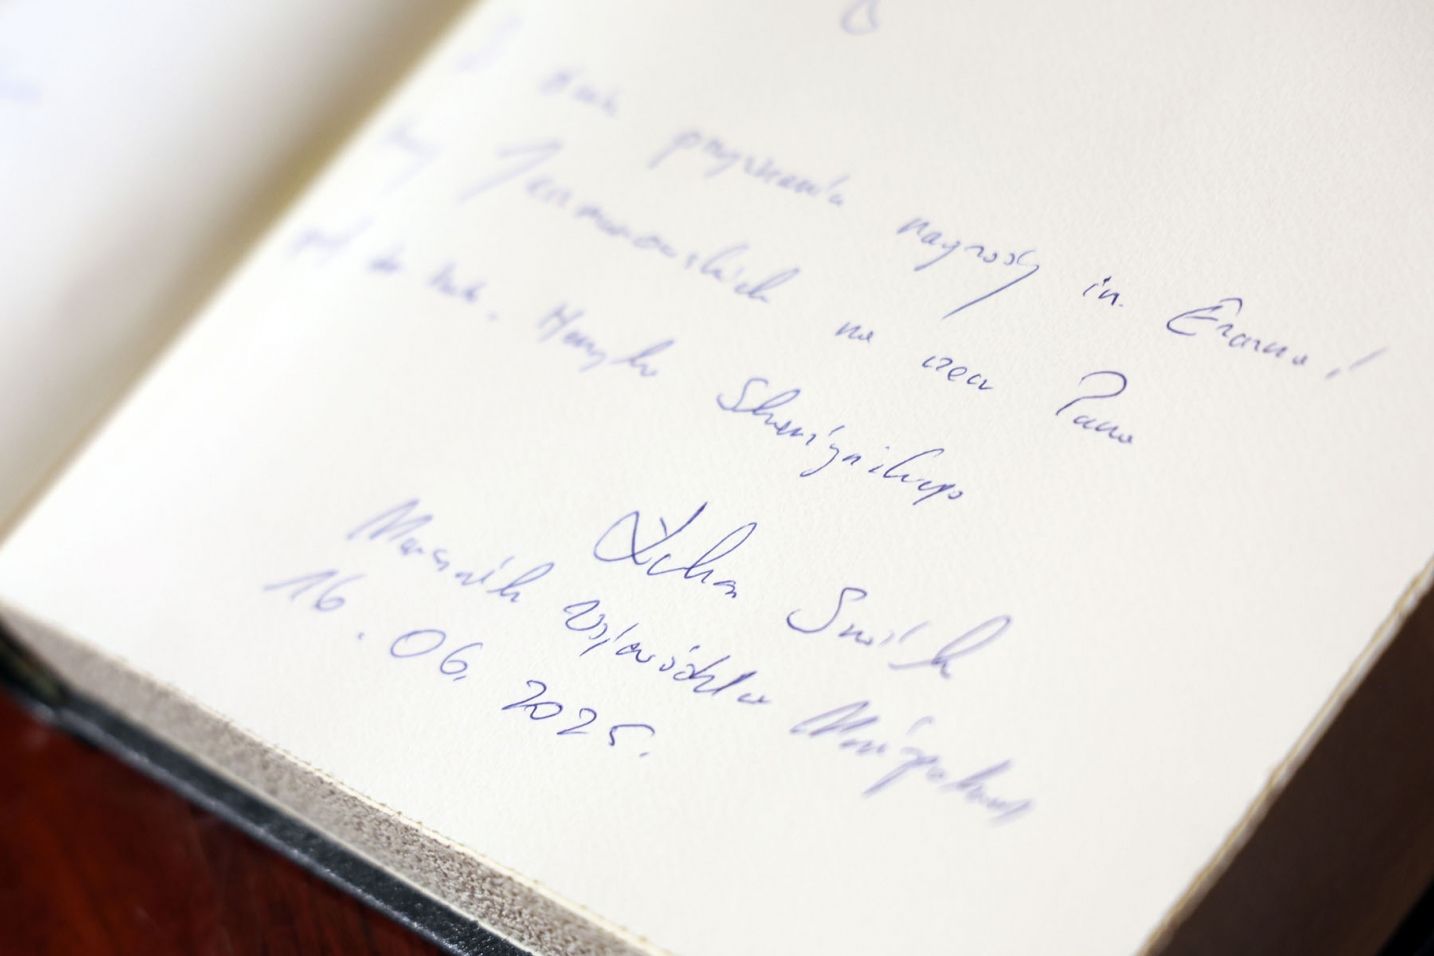 Z okazji przyznania nagrody im. Erazma i
Anny Jerzmanowskich na rzecz Pana
prof. dr hab. Henryka Skarżyńskiego
Łukasz Smółka
Marszałek Województwa Małopolskiego
16.06.2025.